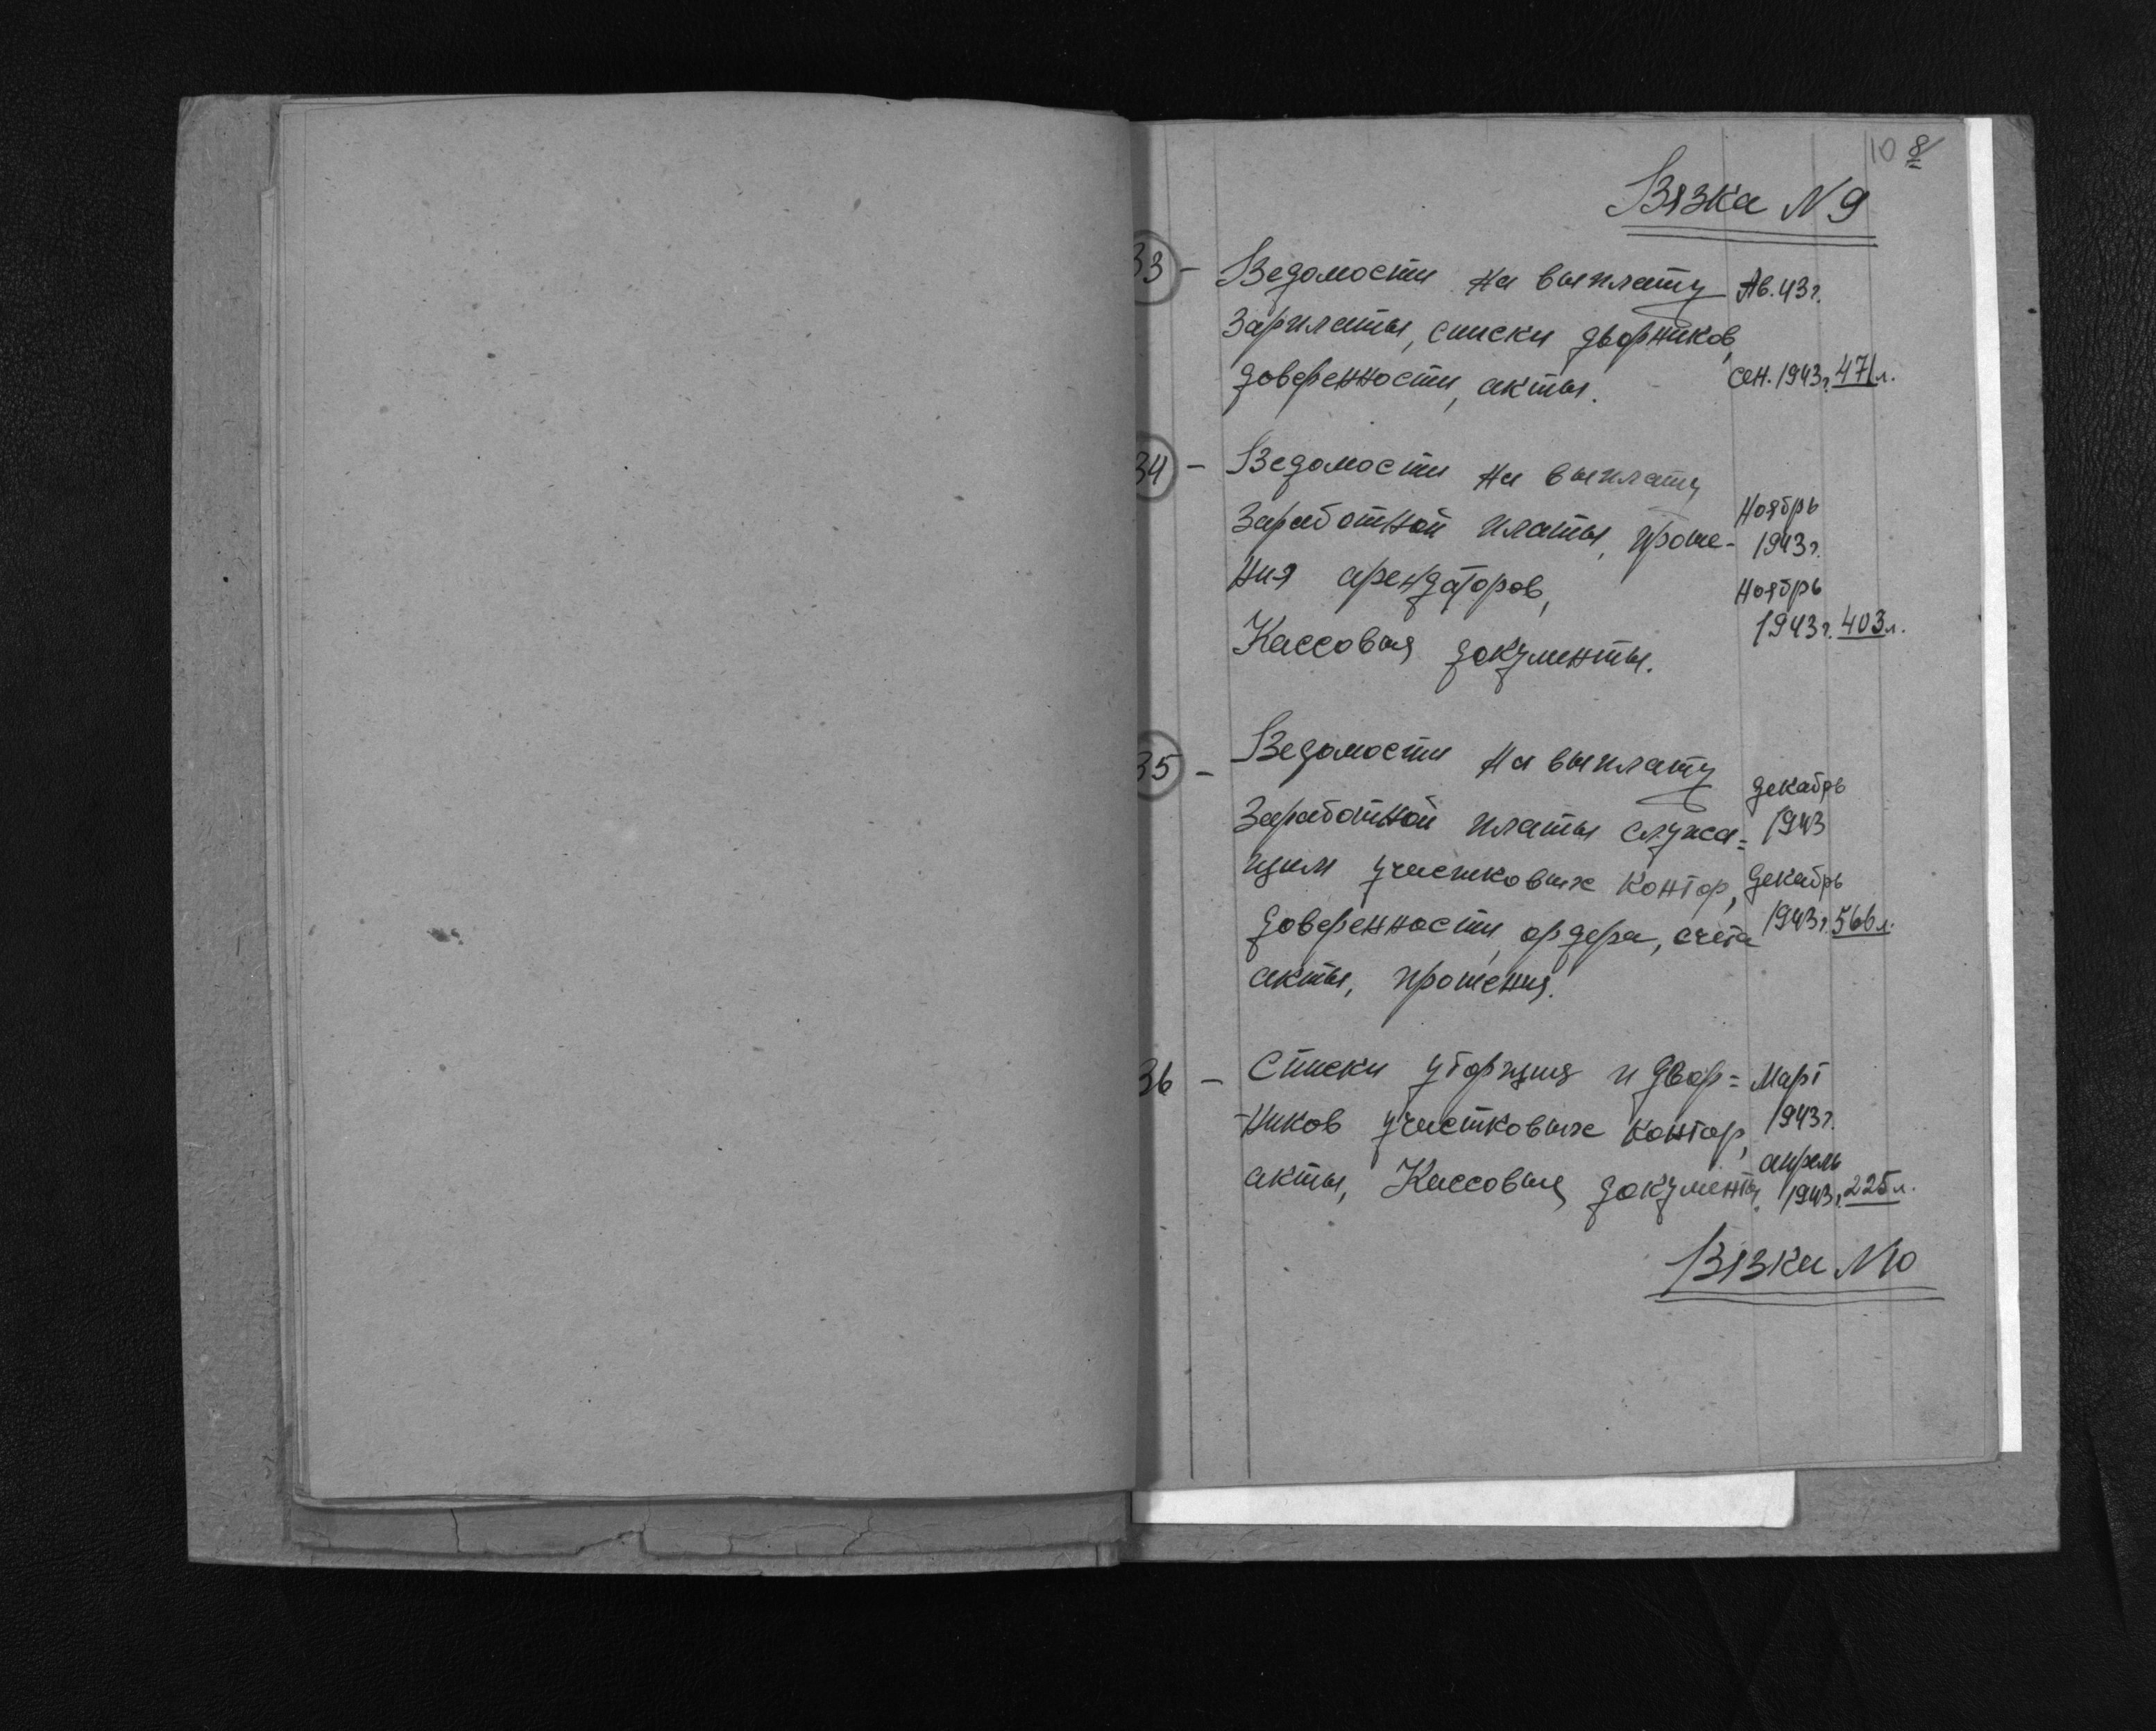 10 8
Вязка N 9
33 - Ведомости на выплату Ав. 43 г.
Зарплаты, списки дворников,
доверенности, акты. Сен. 1943 г. 471 л.
34 - Ведомости на выплату
Заработной платы, проше- Ноябрь 1943 г.
ния арендаторов, Ноябрь
Кассовыя документы. 1943 г. 403 л.
35 - Ведомости на выплату Декабрь
Заработной платы служа= 1943
щим участковых контор, Декабрь
доверенности, ордера, счета 1943 г. 566 л.
акты, прошения.
36 - Списки уборщиц и двор= Март
-ников участковых контор, 1943 г.
акты, Кассовыя документы. апрель 1943 г. 225 л.
Вязка N 10